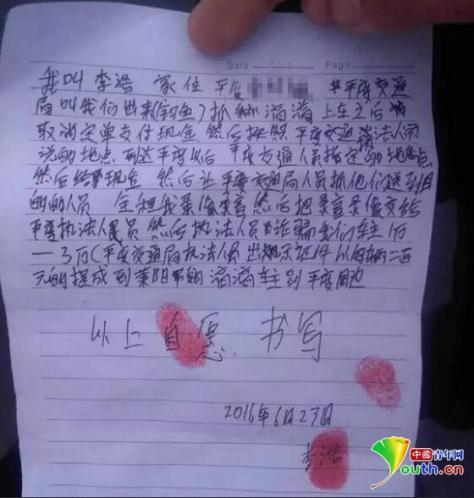 Date
Page
我叫李浩 家住 平度 平度交通
局叫我们出来(钓鱼)抓 滴滴 上车之后
取消定单支付现金 然后按照平度交通 法人员
说的地点 到达平度以后 平度交通人员指定的地点
然后给 现金 然后让平度交通局人员抓他们送到目
的的人员 全程我录像录音 然后把录音录像交给
平度执法人员 然后执法人员 诈骗 车主 1万
一3万(平度交通局执法人员出 示证件 以每辆二百
元的提成 到莱阳 滴滴车主到平度周边
以上自愿 书写
2016年6月23日
李浩
中国青年网
youth.cn